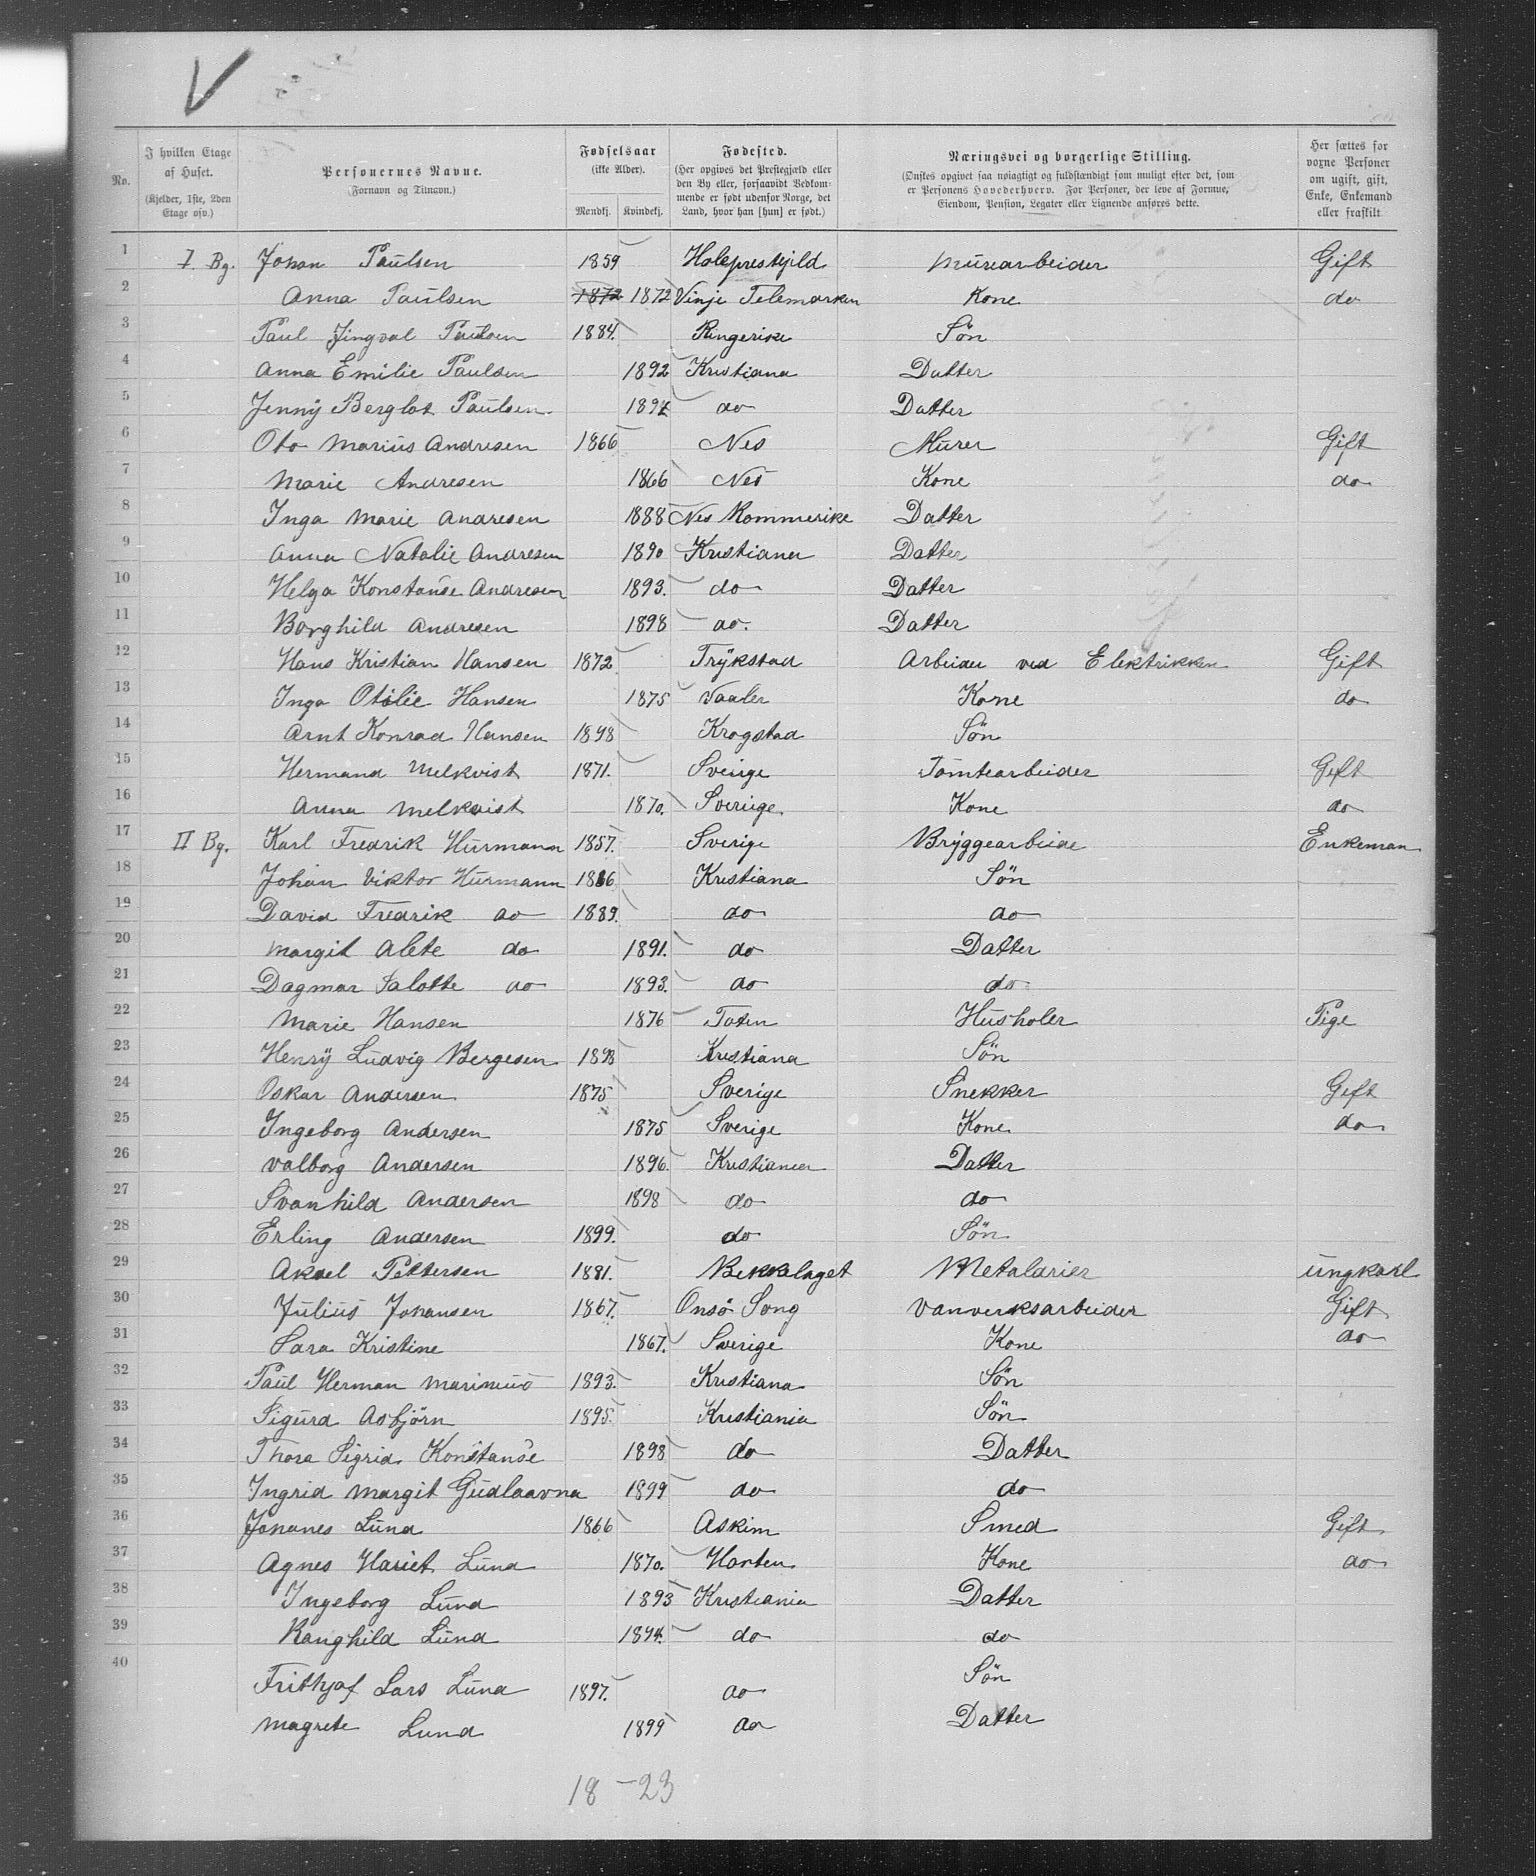 V
No.
I hvilken Etage af Huset. (Kjelder, 1ste, 2den Etage osv.)
Personernes Navne. (Fornavn og Tilnavn.)
Fødselsaar (ikke Alder). Mandkj. Kvindekj.
Fødested. (Her opgives det Prestegjæld eller den By eller, forsaavidt Vedkommende er født udenfor Norge, det Land, hvor han [hun] er født.)
Næringsvei og borgerlige Stilling. (Ønskes opgivet saa nøiagtigt og fuldstændigt som muligt efter det, som er Personens Hovederhverv. For Personer, der leve af Formue, Eiendom, Pension, Legater eller Lignende anføres dette.
Her sættes for voxne Personer om ugift, gift, Enke, Enkemand eller fraskilt
1 I. Bg. Johan Paulsen 1859 Holeprestejild Murearbeider Gift
2 Anna Paulsen 1872 1872 Vinje Telemarken Kone do
3 Paul Jingval Paulsen 1884. Ringerike Søn
4 Anna Emilie Paulsen 1892 Kristiana Datter
5 Jenny Berglot Paulsen 1894 do Datter
6 Oto Marius Andresen 1866 Nes Murer Gift
7 Marie Andresen 1866 Nes Kone do
8 Inga Marie Andresen 1888 Nes Rommerike Datter
9 Anna Natalie Andresen 1890 Kristiana Datter
10 Helga Konstanse Andresen 1893. do Datter
11 Borghild Andresen 1898 do. Datter
12 Hans Kristian Hansen 1872 Trykstad Arbeider ved Elektrikken Gift
13 Inga Otilie Hansen 1875 Vaaler Kone do
14 Arnt Konrad Hansen 1898 Krogstad Søn
15 Hermand Melkvist 1871. Sverige Tomtearbeider Gift
16 Anna Melkvist 1870. Sveriige Kone do
17 II Bg. Karl Fredrik Hurmann 1857. Sverige Bryggearbeide Enkeman
18 Johan Viktor Hurmann 1886 Kristiana Søn
19 David Fredrik do 1889. do do
20 Margit Alete do 1891. do Datter
21 Dagmar Salotte do 1893. do do
22 Marie Hansen 1876 Toten Husholer Pige
23 Henry Ludvig Bergesen 1898 Kristiana Søn
24 Oskar Andersen 1875 Sverige Snekker Gift
25 Ingeborg Andersen 1875 Sverige Kone do
26 Valborg Andersen 1896 Kristiana Datter
27 Svanhild Andersen 1898 do do
28 Erling Andersen 1899. do Søn
29 Aksel Pettersen 1881. Bekkelaget Metalarier ungkarl
30 Julius Johansen 1867. Onsö Song Vanverksarbeider Gift
31 Sara Kristine 1867. Sverige Kone do
32 Paul Herman Marinius 1893. Kristiana Søn
33 Sigurd Asbjörn 1895 Kristiania Søn
34 Thora Sigrid Konstanse 1898 do Datter
35 Ingrid Margit Gudlaavna 1899 do do
36 Johanes Lund 1866 Askim Smed Gift
37 Agnes Hariet Lund 1870. Horten Kone do
38 Ingeborg Lund 1893 Kristiania Datter
39 Ranghild Lund 1894. do do
40 Frithjof Lars Lund 1897. do Søn
Magrete Lund 1899 do Datter
18 - 23